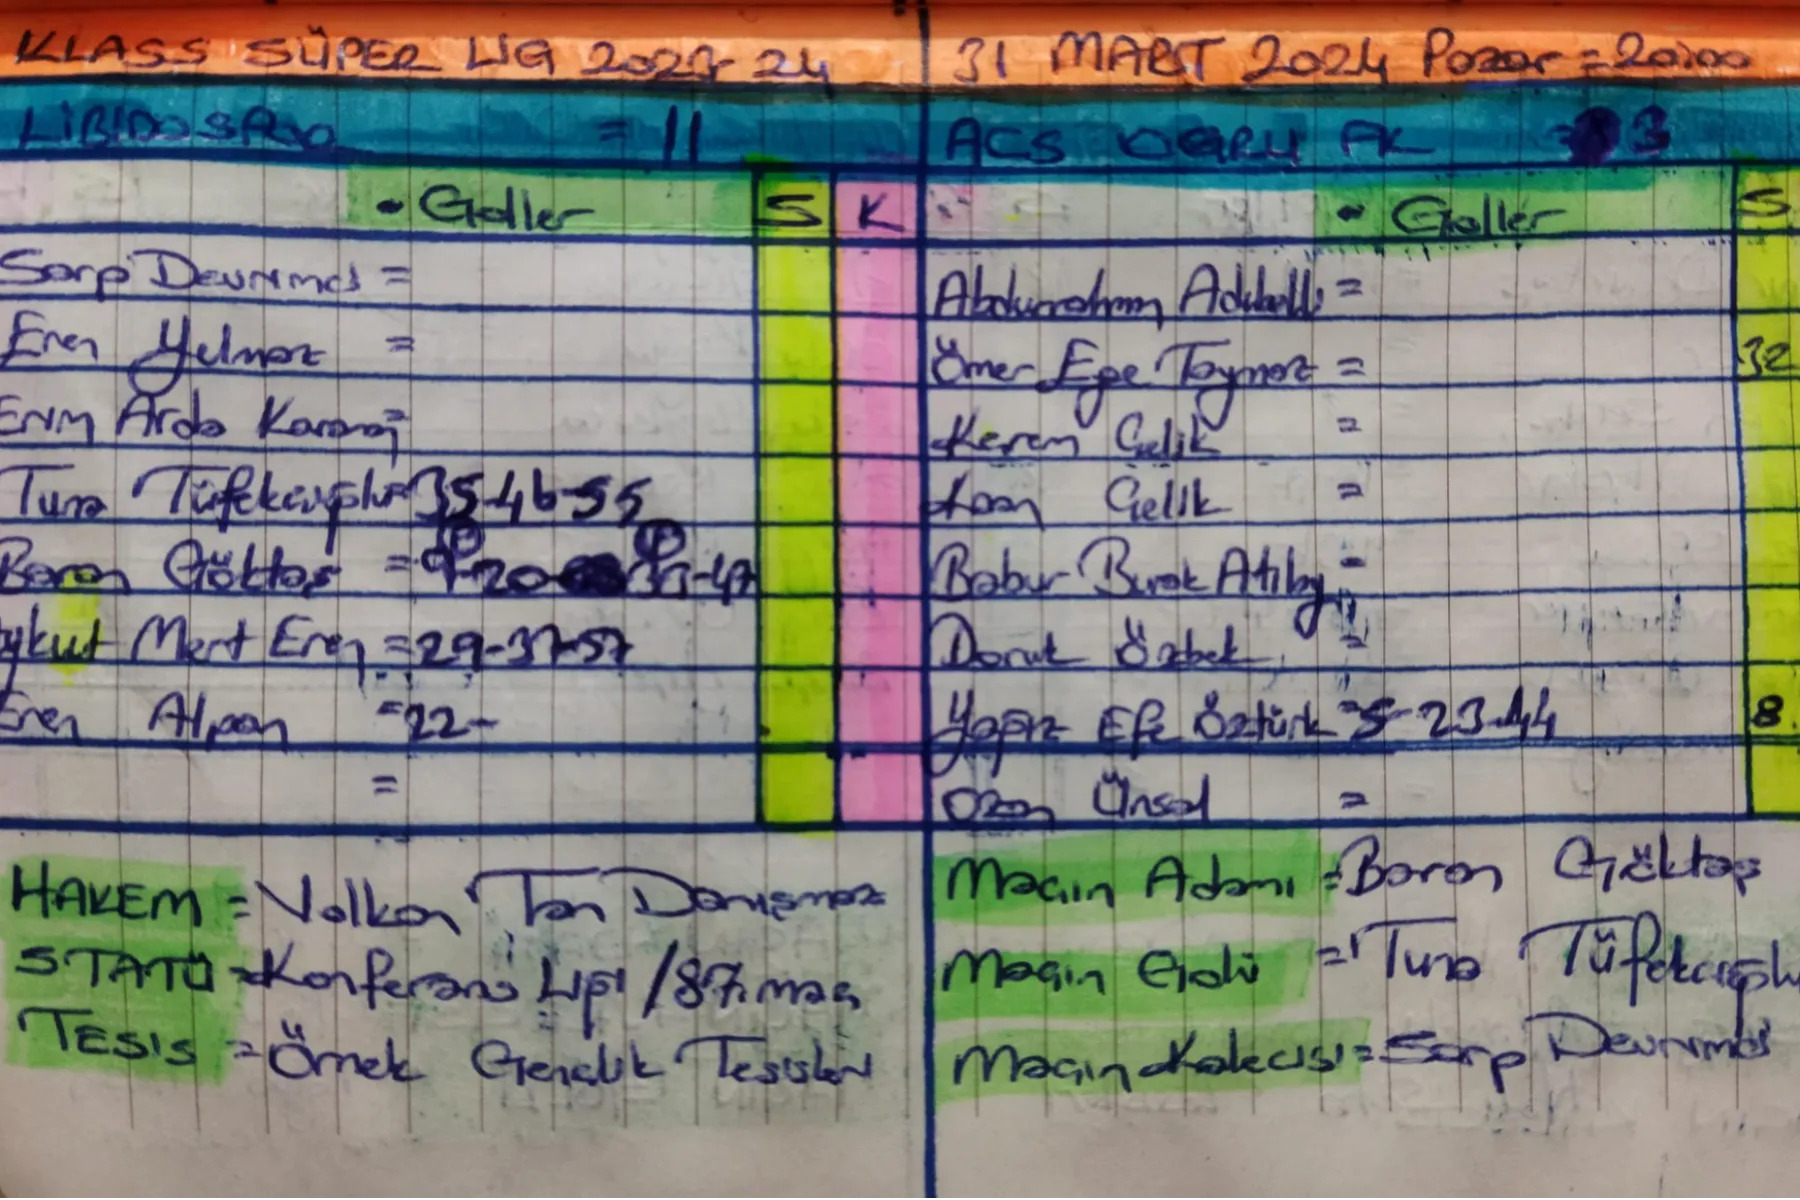 KLASS SÜPER LİG 2023-24
31 MART 2024 Pazar = 20:00
LİBİDOSPOR = 11
ACS DOĞRU FK = 3
• Goller S K
• Goller S
Sarp Devrimci =
Abdurrahman =
Eren Yılmaz =
Ömer Ege Taymaz = 32
Arda =
Kerem Çelik =
Tuna Tüfekçioğlu = 35-46-55
Çelik =
Baran Göktaş = 9-20- -47
Babür Burak =
Aykut Mert Eren = 29-37-57
Doruk Özbek =
Eren Alpan = 22-
Yağız Efe Öztürk = 5-23-44 8
=
Ozan Ünsal =
HAKEM = Volkan Tan Danışmaz
STATÜ = Konferans Ligi / 87. maç
TESİS = Örnek Gençlik Tesisleri
Maçın Adamı = Baran Göktaş
Maçın Golü = Tuna Tüfekçioğlu
Maçın Kalecisi = Sarp Devrimci